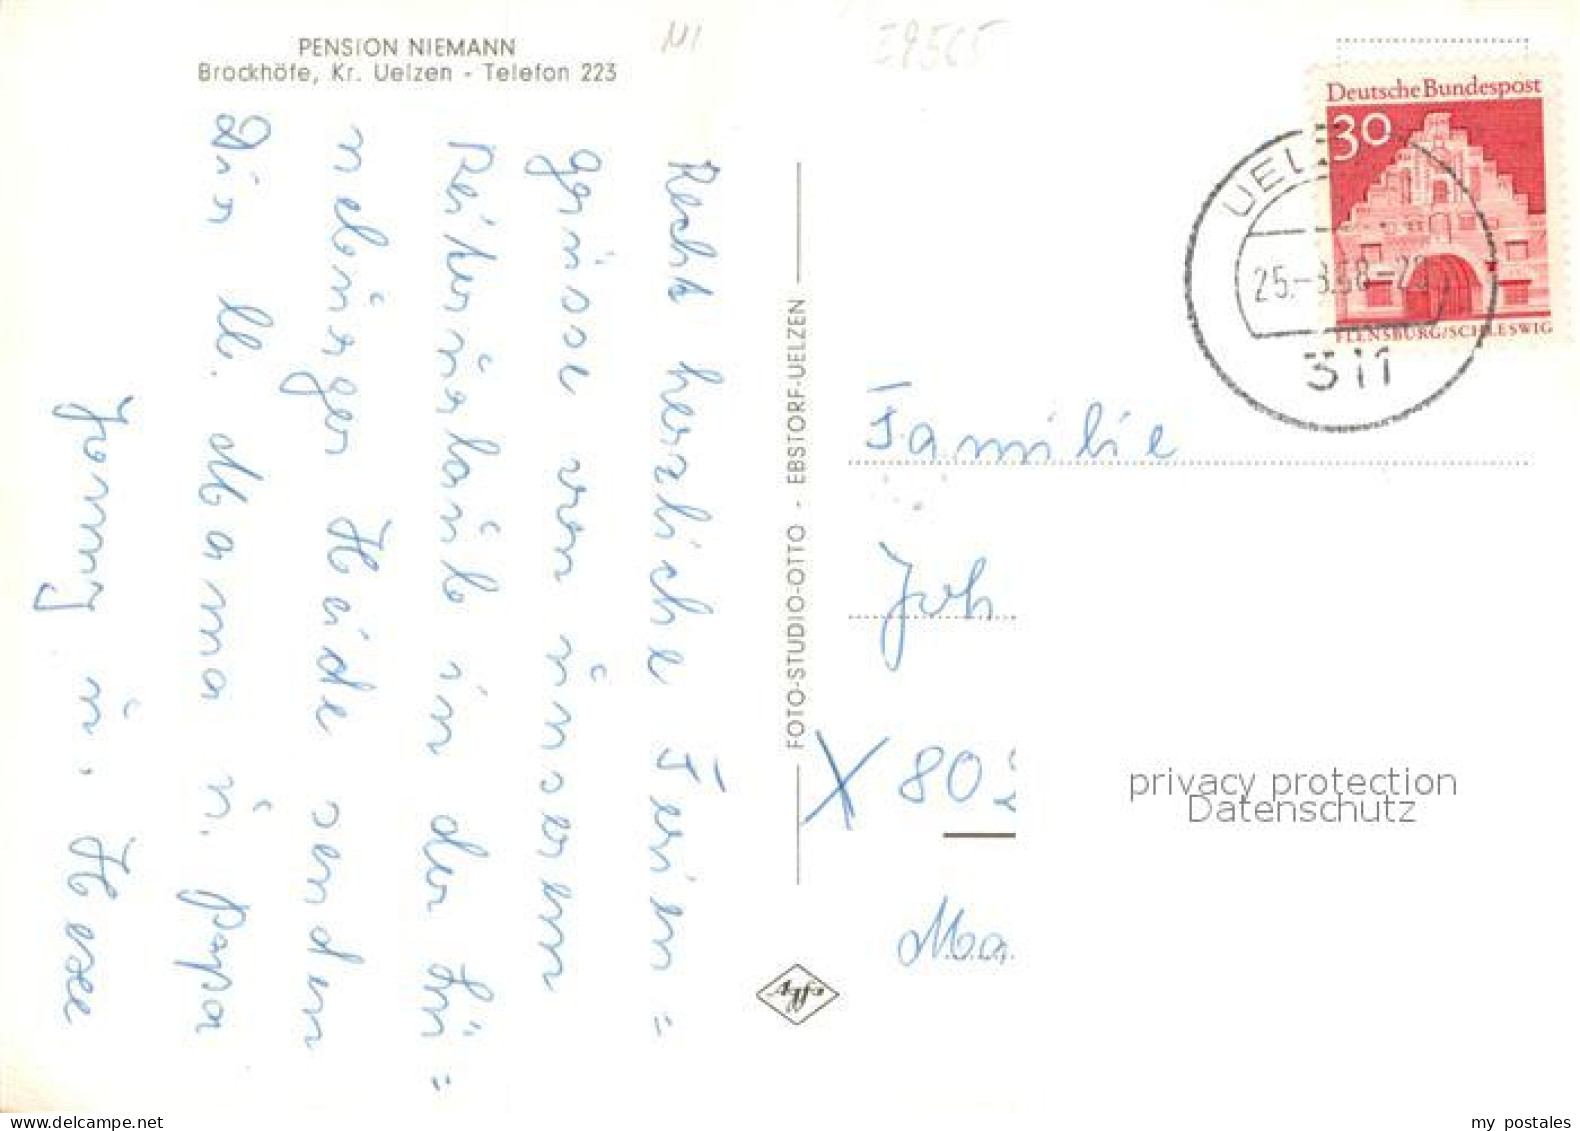 PENSION NIEMANN
Brockhöfe, Kr. Uelzen - Telefon 223
Recht herzliche Ferien=
grüsse von unserem
Reiterurlaub in der Lü=
neburger Heide senden
Dir lb. Mama u. Papa
Jonny u.
FOTO-STUDIO-OTTO - EBSTORF-UELZEN
Deutsche Bundespost
30
FLENSBURG/SCHLESWIG
UELZ
25.-8.68-20
311
Familie
Joh
X 80
Ma
privacy protection
Datenschutz
my postales